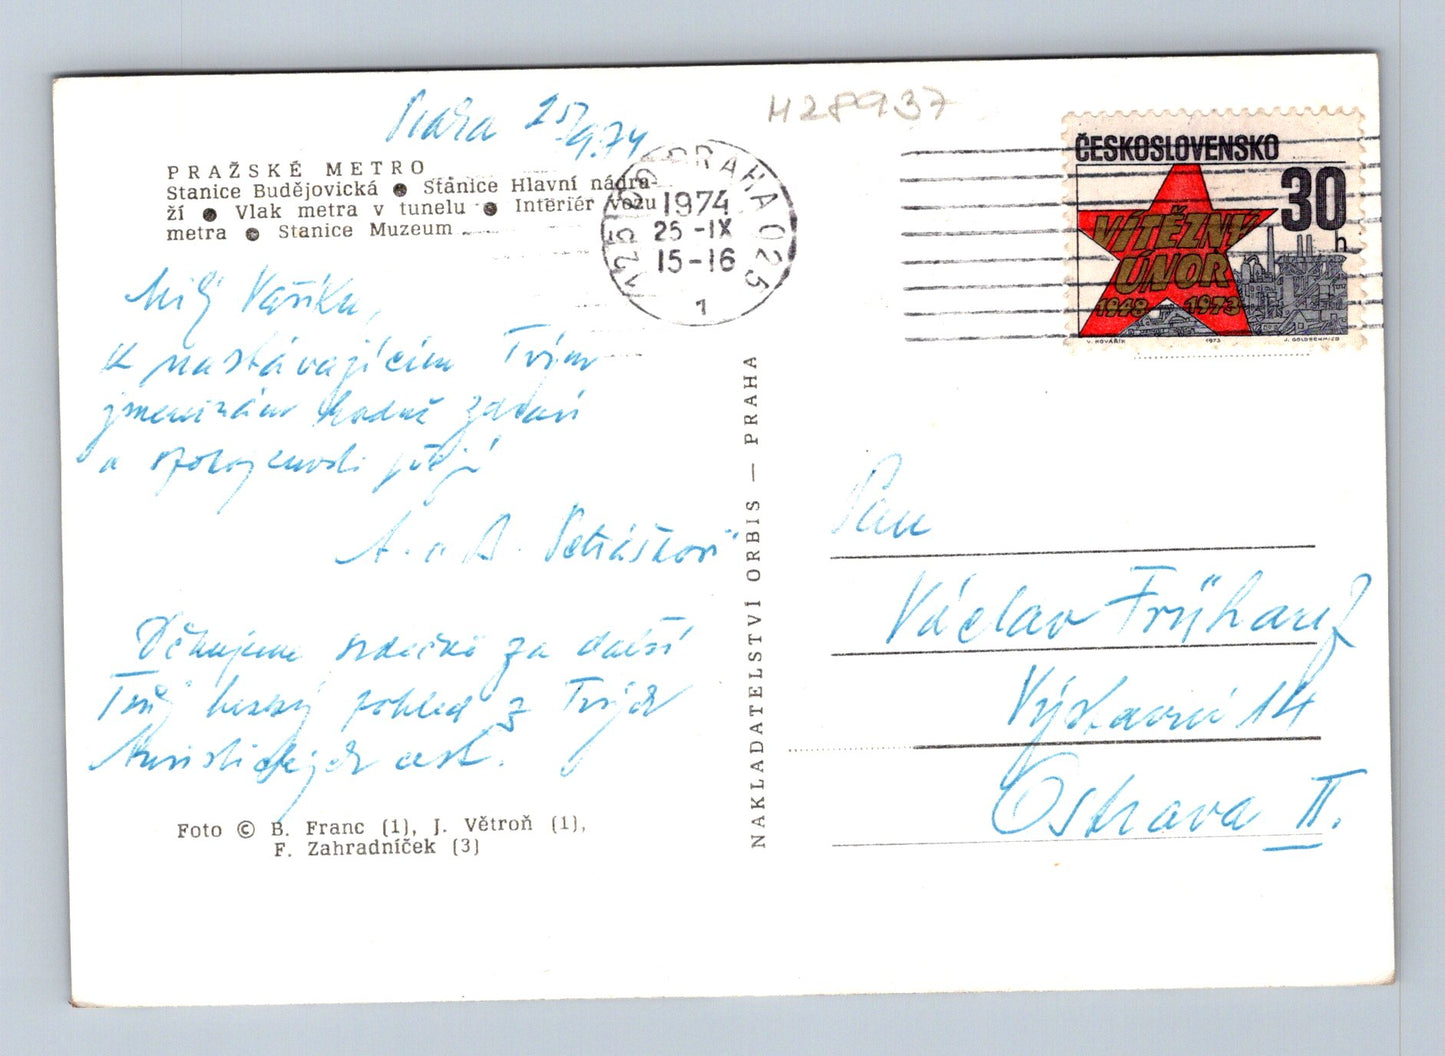 Praha 25/9.74
H28937
PRAŽSKÉ METRO
Stanice Budějovická ● Stanice Hlavní nádra-
ží ● Vlak metra v tunelu ● Interiér vozu
metra ● Stanice Muzeum
125 00 PRAHA 025
1974
25 -IX
15-16
1
ČESKOSLOVENSKO
30 h
VÍTĚZNÝ
ÚNOR
1948 1973
V. KOVÁŘÍK 1973 J. GOLDSCHMIED
Milý Vašíku,
K nastávajícím Tvým
jmeninám hodně zdraví
a spokojenosti přejí
A. a A. Petráškovi
Děkujeme srdečně za další
Tvůj hezký pohled z Tvých
turistických cest.
Foto © B. Franc (1), J. Větroň (1),
F. Zahradníček (3)
NAKLADATELSTVÍ ORBIS — PRAHA
Pan
Václav Frühauf
Výstavní 14
Ostrava II.